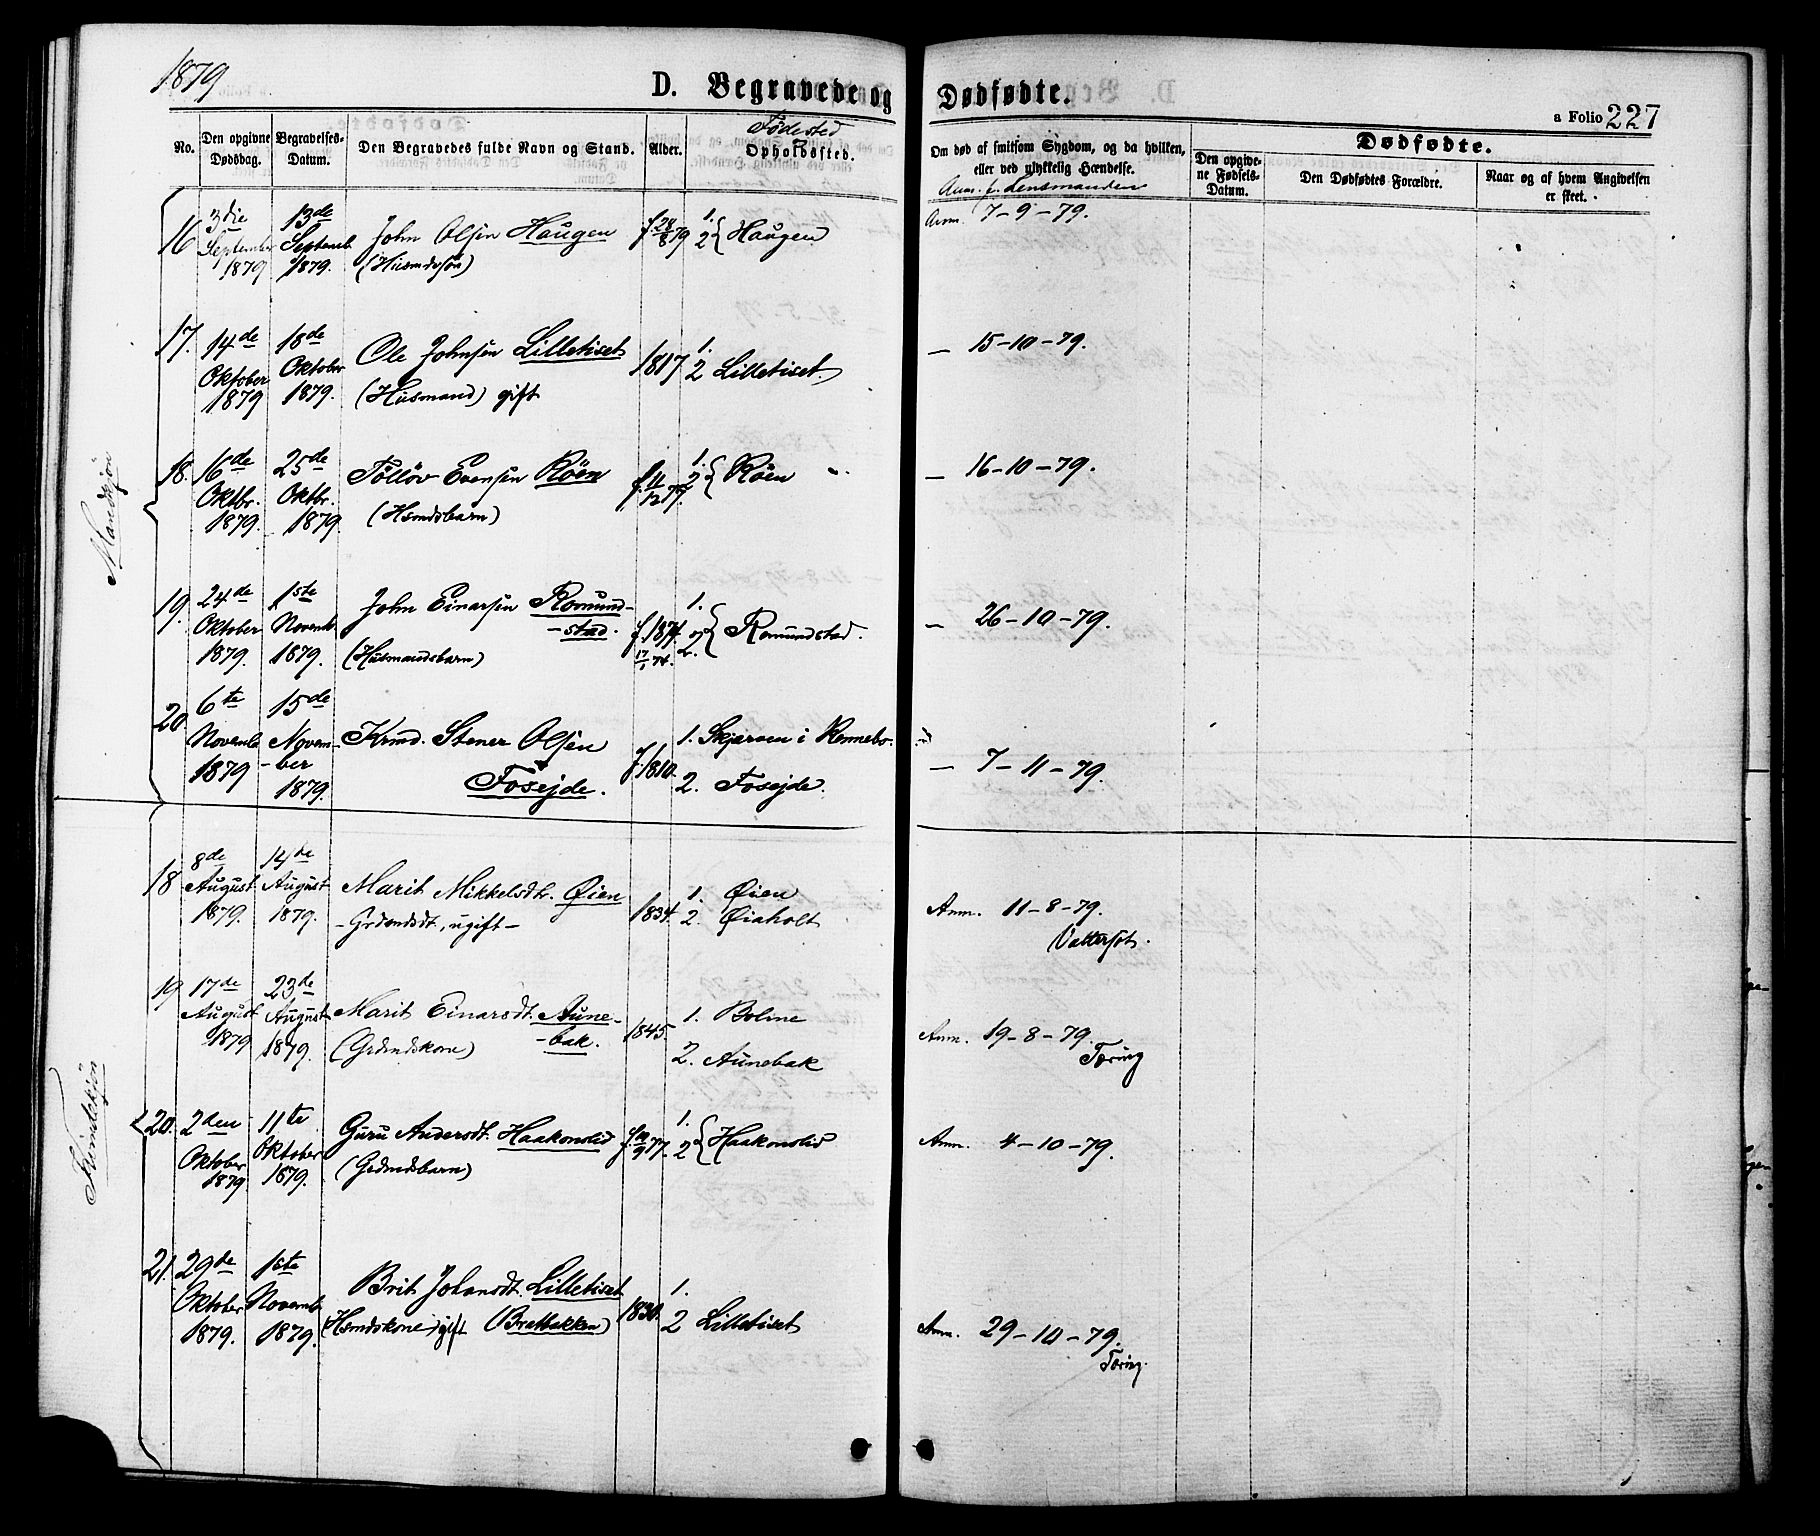 1879
D. Begravede og Dødfødte.
a Folio 227
No.
Den opgivne Dødsdag.
Begravelses-Datum.
Den Begravedes fulde Navn og Stand.
Alder.
Fødested
Opholdssted.
Om død af smitsom Sygdom, og da hvilken,
eller ved ulykkelig Hændelse.
Anm. f. Lensmanden
Dødfødte.
Den opgivne Fødsels-Datum.
Den Dødfødtes Forældre.
Naar og af hvem Angivelsen er skeet.
Mandsjøn
16 3die September 1879 13de Septemb. 1879. John Olsen Haugen (Husmdssøn) f. 24/8 79 1. 2 Haugen Anm. 7-9-79.
17. 14de Oktober 1879 18de Oktober 1879. Ole Johnsen Lilletiset (Husmand) gift 1817 1. 2 Lilletiset. — 15-10-79.
18. 16de Oktbr. 1879. 25de Oktbr. 1879. Tølløv Evensen Röen (Hsmdsbarn) f. 4/12 77. 1. 2 Röen — 16-10-79.
19. 24de Oktober 1879. 1ste Novemb 1879. John Einarsen Romund-stad. (Husmandsbarn) f. 1874. 17/1 74. 1. og 2. Romundstad. — 26-10-79.
20 6te Novemb 1879 15de Novem-ber 1879. Krmd. Stener Olsen Fosejde. f. 1810. 1. Skjerven i Rennebo. 2. Fosejde. — 7-11-79.
Kvindekjøn
18 8de August 1879. 14de August 1879. Marit Mikkelsdtr. Øien - Grdmdsdt., ugift - 1834. 1. Øien 2. Øiaholt Anm. 11-8-79. Vattersot.
19 17de August 1879 23de August 1879. Marit Einarsdt. Aune-bak. (Grdmdskone) 1845. 1. Boline 2. Aunebak Anm. 19-8-79. Tæring
20. 2den Oktober 1879 11te Oktober 1879. Guru Andersdt. Haakonslid (Grdmdsbarn) 1. 2 Haakonslid Anm. 4-10-79.
21. 29de Oktober 1879. 1ste Novemb 1879. Brit Johansdt. Lilletiset (Hsmdskone) gift (Bratbakken) 1830. 1. 2 Lilletiset Anm. 29-10-79. Tæring.